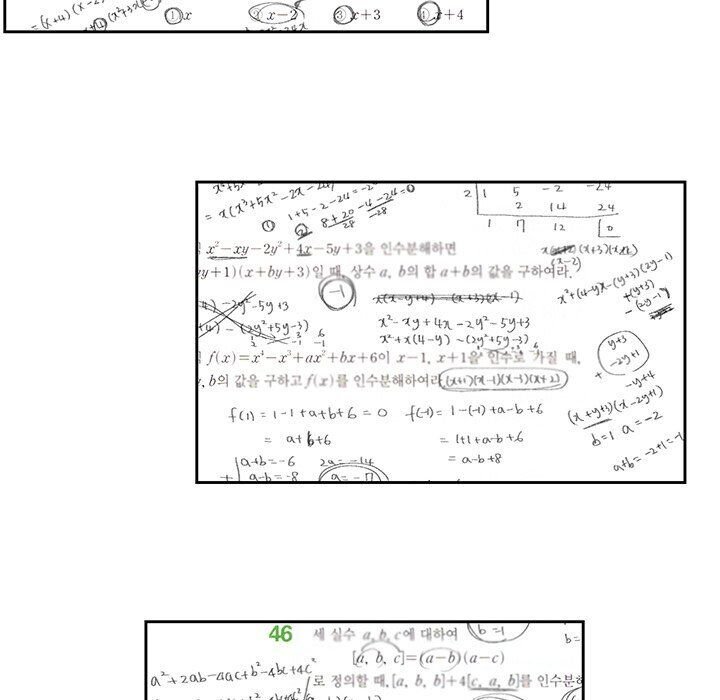 =(x+4)(x-2
① x ② x-2 ③ x+3 ④ x+4
= x(x³+5x²-2x-24)
① 1+5-2-24=-2
② 8+20-4-24=0
28 -28
2 | 1 5 -2 -24
2 14 24
1 7 12 0
x²-xy-2y²+4x-5y+3을 인수분해하면
(x+3)
(x-2)
y+1)(x+by+3)일 때, 상수 a, b의 합 a+b의 값을 구하여라.
-1
x²+(4-y)x-(y+3)(2y-1)
+(y+3)
-(2y-1)
-2y²-5y+3
-(2y²+5y-3)
x²-xy+4x-2y²-5y+3
x²+x(4-y)-(2y²+5y-3)
y+3
-2y+1
+
-y+4
f(x)=x⁴-x³+ax²+bx+6이 x-1, x+1을 인수로 가질 때,
, b의 값을 구하고 f(x)를 인수분해하여라.
(x+1)(x-1)(x-3)(x+2)
(x+y+3)(x-2y+1)
b=1 a=-2
a+b=-2+1=-1
f(1)=1-1+a+b+6=0 f(-1)=1-(-1)+a-b+6
= a+b+6 =1+1+a-b+6
= a-b+8
a+b=-6 2a=-14
+ a-b=-8 a=-7
46 세 실수 a, b, c에 대하여
b=1
b=
[a, b, c]=(a-b)(a-c)
a²+2ab-4ac+b²-4bc+4c²
로 정의할 때, [a, b, b]+4[c, a, b]를 인수분해